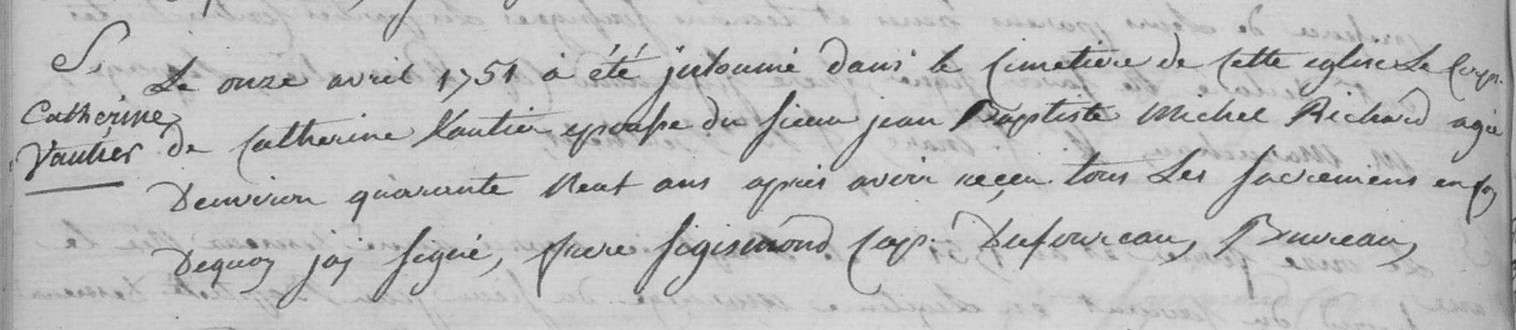 S.
Catherine
Vautier
Le onze avril 1751 a été inhumé dans le cimetiere de cette eglise Le Corps
de Catherine Vautier epouse du sieur jean Baptiste Michel Richard agée
Denviron quarante neuf ans après avoir reçeu tous Les sacremens en foy
Dequoy jay signé, frere Sigismond Cap. Bureau,